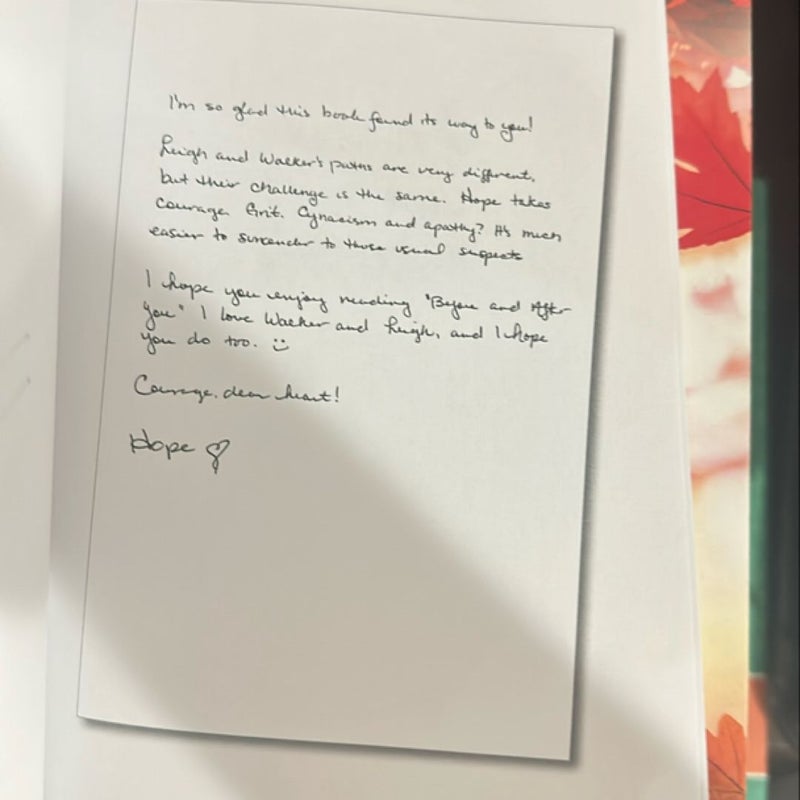 I'm so glad this book found its way to you!
Leigh and Walker's paths are very different,
but their challenge is the same. Hope takes
courage. Grit. Cynacism and apathy? It's much
easier to surrender to those usual suspects
I hope you enjoy reading "Before and After
You" I love Walker and Leigh, and I hope
you do too. :)
Courage, dear heart!
Hope ♡